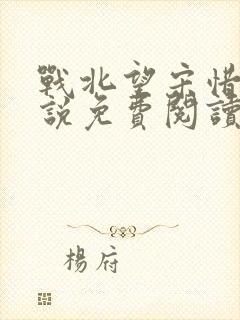 戰北望宋惜
說免費閱讀
楊府